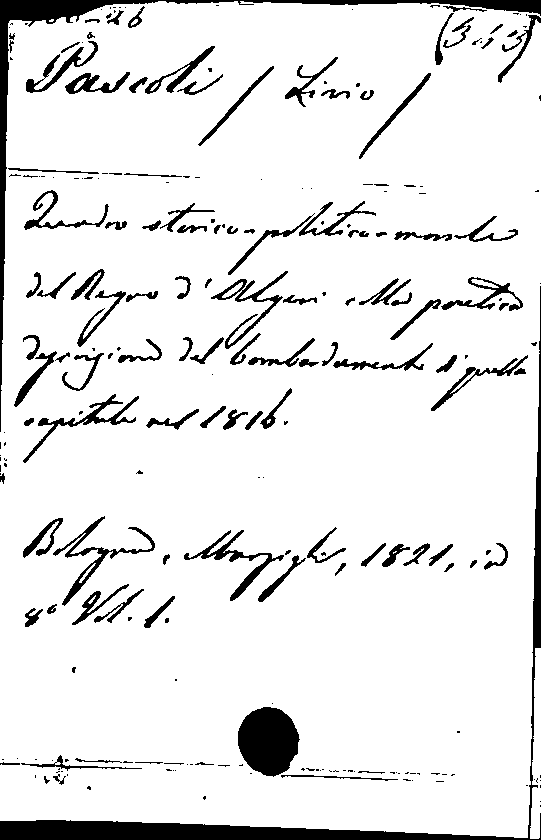 (343)
Pascoli / Livio /
Quadro storico-politico-morale
del Regno d'Algeri colla poetica
descrizione del bombardamento di quella
capitale nel 1816.
Bologna, Marsigli, 1821, in
8° Vol. 1.